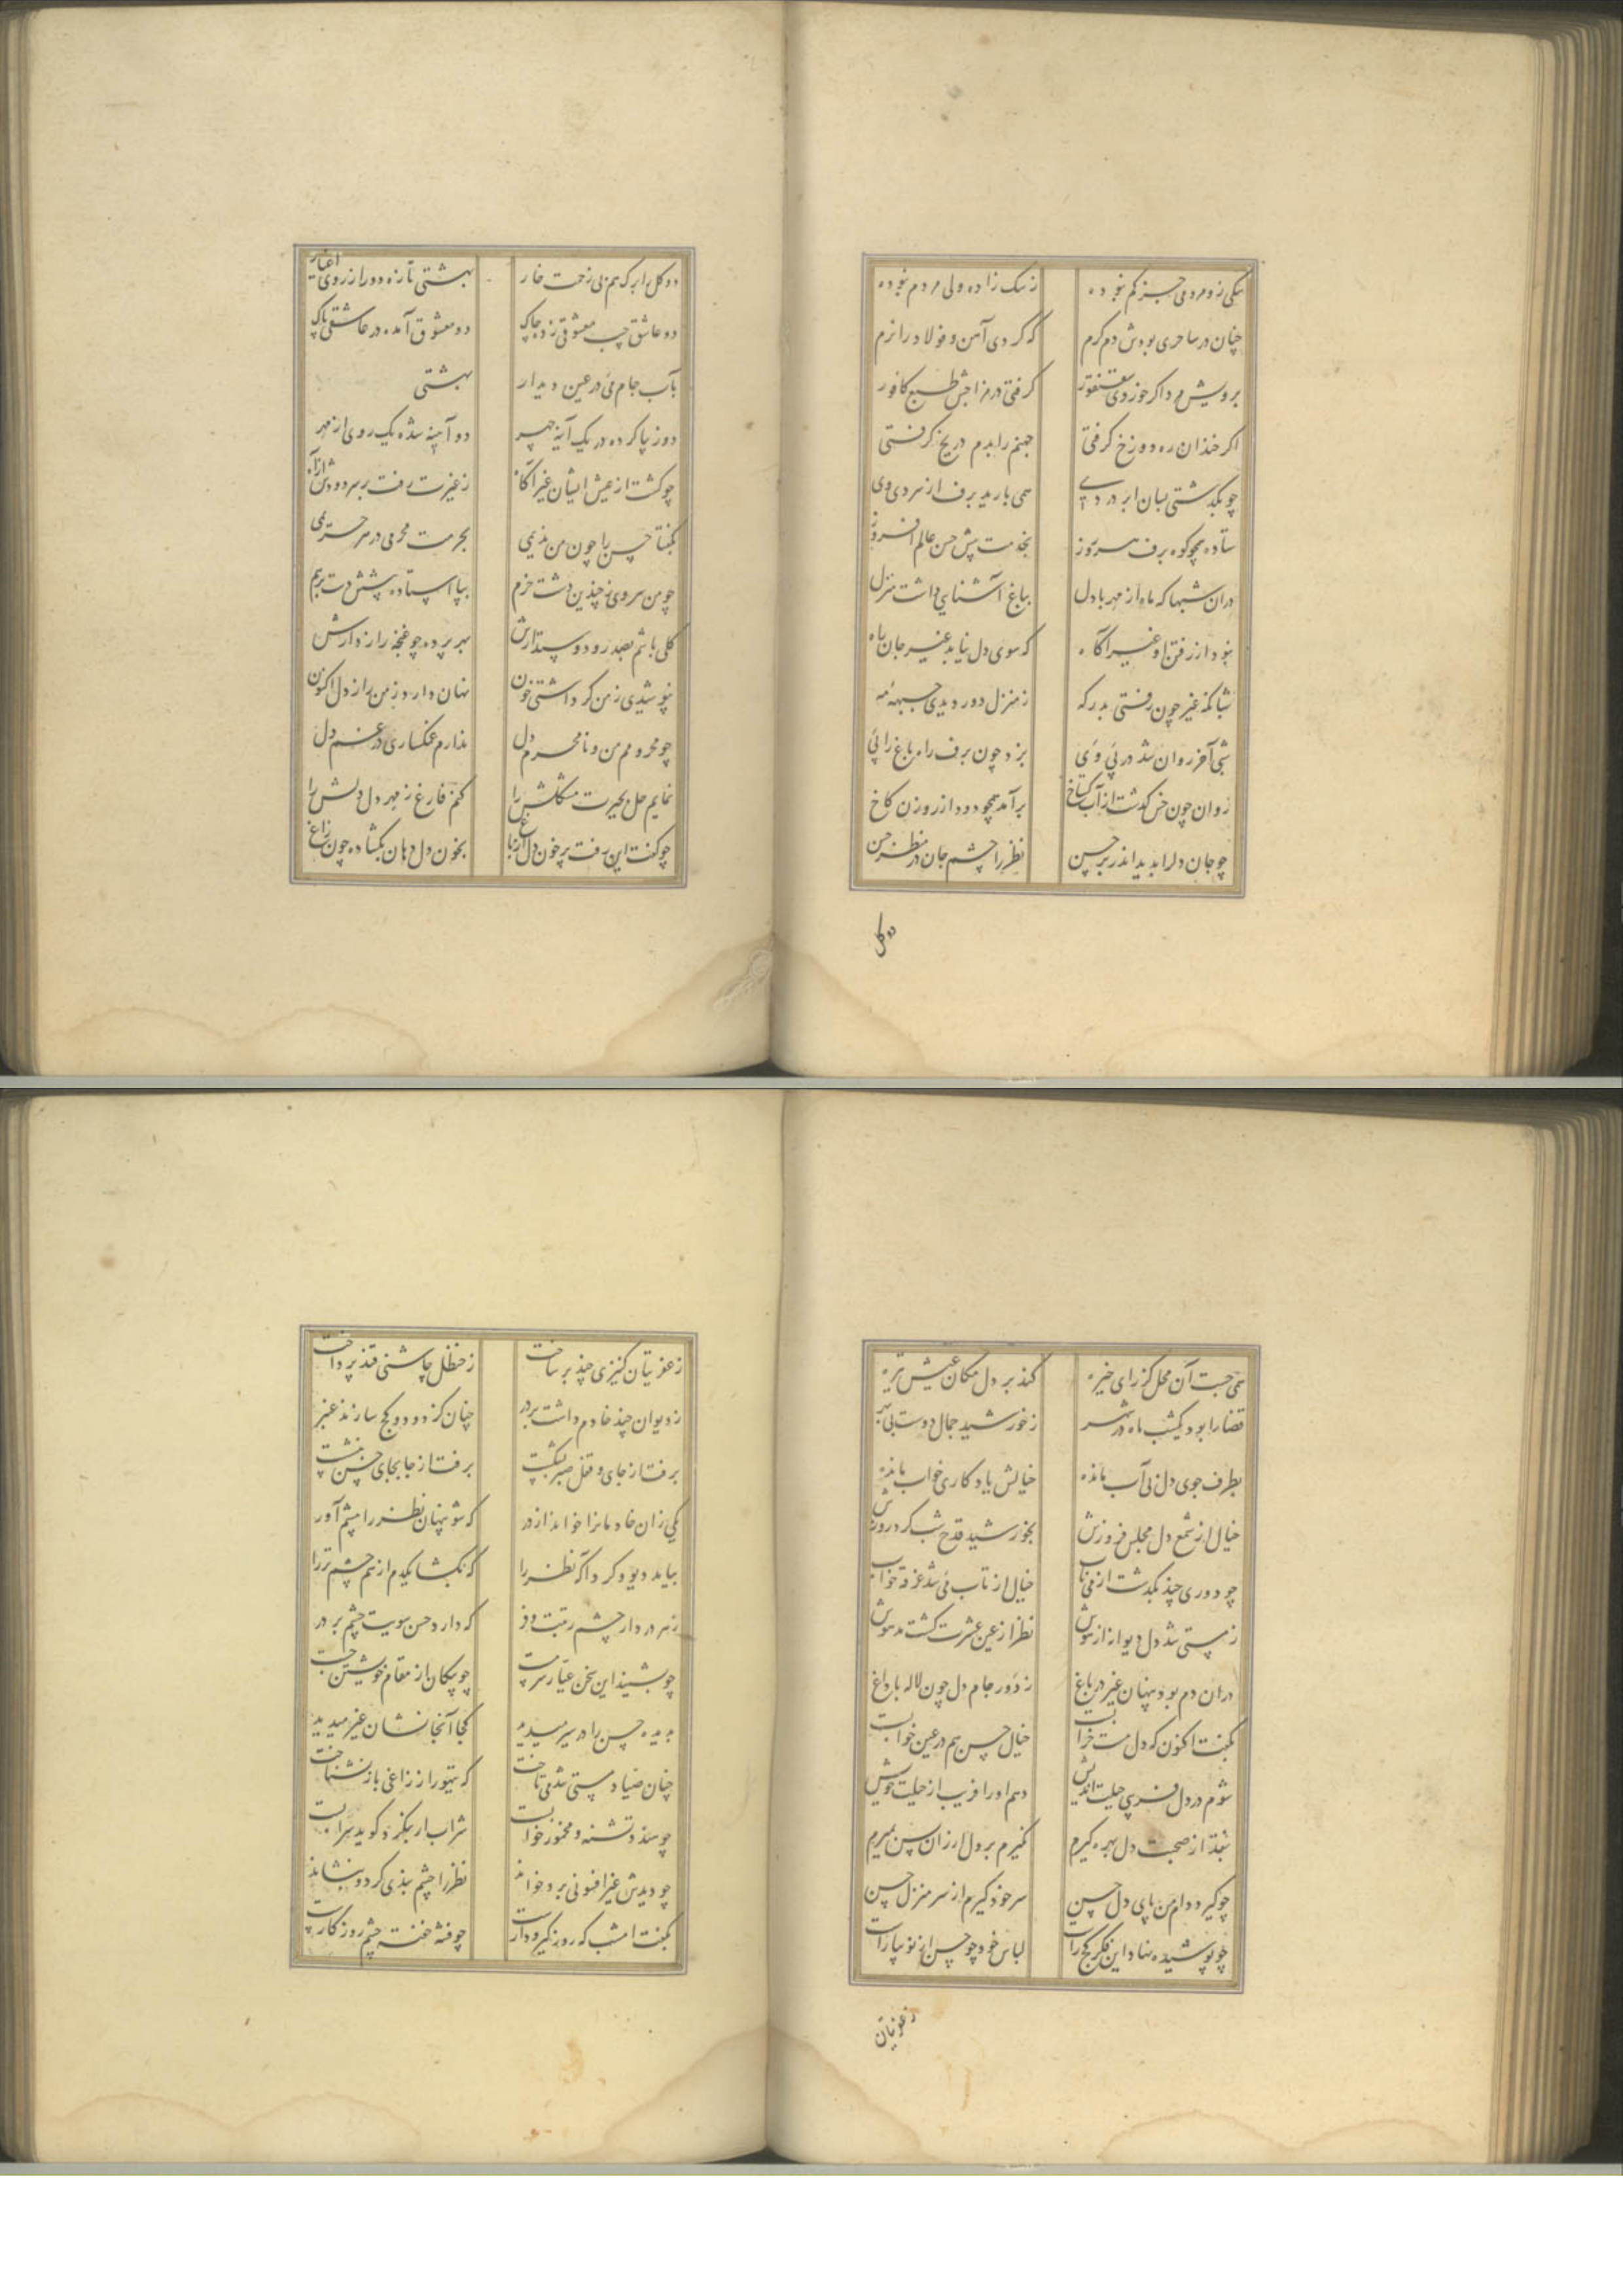 سکی زو مردمی جز کم نبوده زسک زاده ولی مردم نبوده
چنان در ساحری بودش دم کرم که کردی آهن و فولاد را نرم
برویش مرد اکر خوردی سقنقور کرفتی در مزاجش طبع کافور
اکر خندان ره دوزخ کرفتی جهنم را بدم در یخ کرفتی
چو بگذشتی بسان ابر در دی همی بارید برف از سردی وی
ستاده همچو کوه برف هر روز بخدمت پیش حسن عالم افروز
دران شبها که ماه از مهر با دل بباغ آشنایی داشت منزل
نبود از رفتن او غیر آکاه که سوی دل نیابد غیر جان راه
شبانکه غیر چون رفتی بدرکه ز منزل دور دیدی جبهه مه
شبی آخر روان شد در پی وی بزد چون برف راه باغ را پی
روان چون خس کذشت از آب کستاخ برآمد همچو دود از روزن کاخ
چو جان دلرا بدید اندر بر حسن نظر را چشم جان در منظر حسن
دو کل
دو کل برابر که هم بی زحمت خار بهشتی تازه دور از روی اغیار
دو عاشق جیب معشوقی زده چاک دو معشوق آمده در عاشقی پاک
بآب جام می در عین دیدار بهشتی
دو زیبا کرده در یک آینه چهر دو آیینه شده یک روی از مهر
چو کشت از عیش ایشان غیر آکاه ز غیرت رفت بر سر دودش از آه
بکفتا حسن را چون من ندیمی بحرمت محرمی در هر حریمی
چو من سروی نه چندین دشت خرم بپا استاده پیشش دست برهم
کلی باشم بصد رو دوستدارش بهر پرده چو غنچه رازدارش
نپوشیدی ز من کر داشتی خون نهان دارد ز من راز دل اکنون
چو محرومم من و نامحرم دل ندارم غمکساری در غم دل
نمایم حل بحیرت مشکلش را کنم فارغ ز مهر دل دلش را
چو کفت این رفت پر خون دل از باغ بخون دل دهان بکشاده چون زاغ
همی جست آن محل کز رای خیره کند بر دل مکان عیش تیره
قضا را بود یکشب ماه در شهر ز خورشید جمال دوست بی بهر
بطرف جوی دل بی آب مانده خیالش یادکاری خواب مانده
خیال از شمع دل مجلس فروزش بخورشید قدح شب کرد روزش
چو دوری چند بکذشت از می ناب خیال از تاب می شد غرقه خواب
ز مستی شد دل دیوانه از هوش نظر از عین عشرت کشت مدهوش
دران دم بود پنهان غیر در باغ ز دور جام دل چون لاله با داغ
بکفت اکنون که دل مست خرابست خیال حسن هم در عین خوابست
شوم در دل فریبی حیلت اندیش دهم او را فریب از حیلت خویش
بنقد از صحبت دل بهره کیرم نمیرم بر دل ارزان پس بمیرم
چو کیرد دام من پای دل حسن سر خود کیرم از سر منزل حسن
چو پوشیده نهاد این فکر کج راست لباس خود چو حسن از نو بیاراست
ز عفریتان
ز عفریتان کنیزی چند بر ساخت ز حنظل چاشنی قند پرداخت
ز دیوان چند خادم داشت بر در چنان کز دود و کج سازند عنبر
برفت از جای و قفل صبر بشکست برفت از جا بجای حسن بنشست
یکی زان خادمانرا خواند از در که شو پنهان نظر را پیشم آور
بیامد دیو و کرد آکه نظر را که بکشا یکدم از هم چشم تر را
ز سر در دار چشم رتبت و فر که دارد حسن سویت چشم بر در
چو بشنید این سخن عیار سرمست چو پیکان از مقام خویشتن جست
بدیده حسن را در سیر میدید کجا آنجا نشان غیر میدید
چنان صیاد مستی شد همی تاخت که تیهو را ز زاغی باز نشناخت
چو مستد تشنه و مخمور خوابست شراب ار بنکرد کوید سرابست
چو دیدش غیر افسونی برو خواند نظر را چشم بندی کرد و بنشاند
بکفت امشب که روز کیر و دارست چو فتنه خفته چشم روزکارست